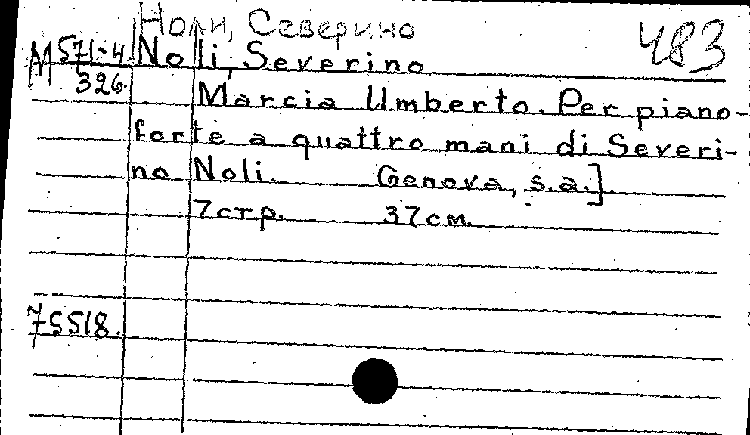 Ноли, Северино
483
М 571-4 Noli, Severino
326.
Marcia Umberto. Per piano-
forte a quattro mani di Severi-
no Noli. Genova, s.a.]
7стр. 37см.
75518.